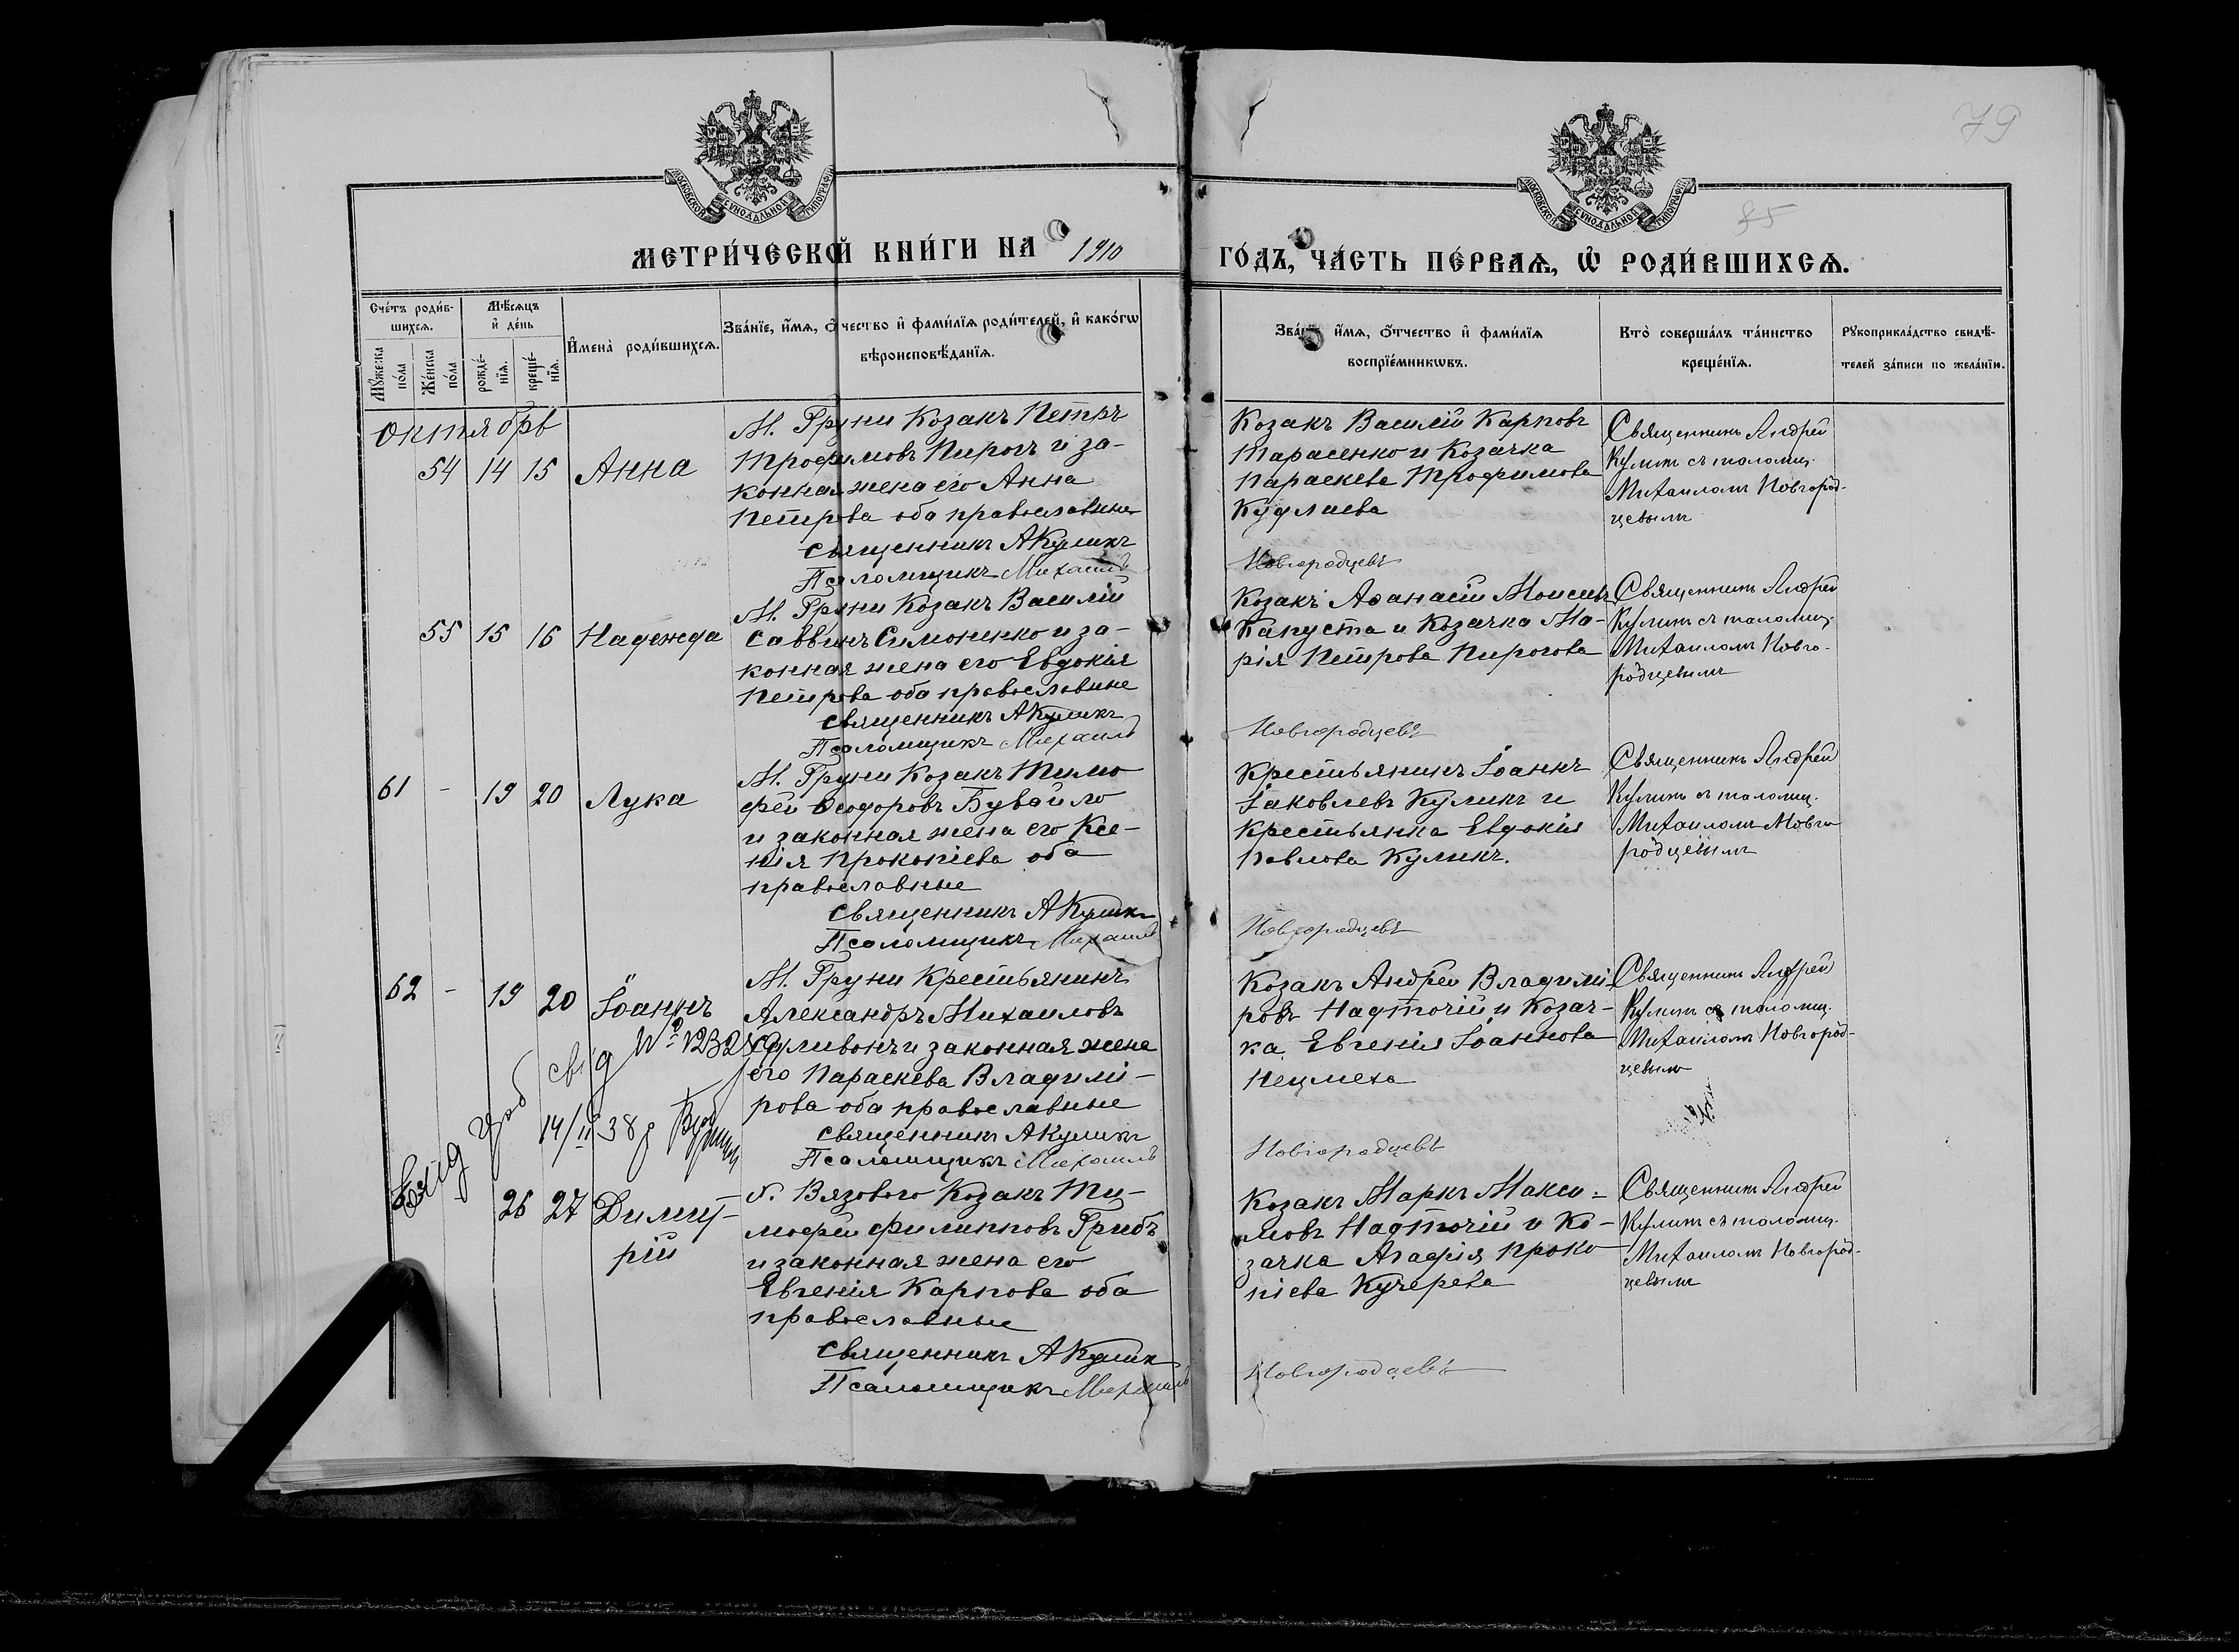 79
85
МОСКОВСКОЙ СѴНОДАЛЬНОЙ ТИПОГРАФІИ
МОСКОВСКОЙ СѴНОДАЛЬНОЙ ТИПОГРАФІИ
МЕТРИ́ЧЕСКОЙ КНИ́ГИ НА 1910
ГО́ДЪ, ЧА́СТЬ ПЕ́РВАѦ, Ѡ҆ РОДИ́ВШИХСѦ.
Сче́тъ роди́в-
шихсѧ.
Мꙋ́жеска по́ла
Же́нска по́ла
Мѣ́сѧцъ
и҆ де́нь
рожде́-
нїѧ.
креще́-
нїѧ.
И҆мена̀ роди́вшихсѧ.
Зва́нїе, и҆́мѧ, ѻ҆́тчество и҆ фами́лїѧ роди́телей, и҆ како́гѡ
вѣроисповѣ́данїѧ.
Зва́нїе, и҆́мѧ, ѻ҆́тчество и҆ фами́лїѧ
воспрїе́мникѡвъ.
Кто̀ соверша́лъ та́инство
креще́нїѧ.
Рꙋкоприкла́дство свидѣ́-
телей за́писи по жела́нїю.
Октябрь
54 14 15 Анна
М. Груни Козакъ Петръ
Трофимовъ Пирогъ и за-
конная жена его Анна
Петрова оба православные
Священникъ А Куликъ
Псаломщикъ Михаилъ
Козакъ Василій Карповъ
Тарасенко и Козачка
Параскева Трофимова
Кудлаева
Новгородцевъ
Священникъ Андрей
Куликъ съ псаломщ.
Михаиломъ Новгород-
цевымъ
55 15 16 Надежда
М. Груни Козакъ Василій
Саввинъ Симоненко и за-
конная жена его Евдокія
Петрова оба православные
Священникъ А Куликъ
Псаломщикъ Михаилъ
Козакъ Аѳанасій Моисеевъ
Капуста и Козачка Ма-
рія Петрова Пирогова
Новгородцевъ
Священникъ Андрей
Куликъ съ псаломщ.
Михаиломъ Новго-
родцевымъ
61 - 19 20 Лука
М. Груни Козакъ Тимо
фей Ѳеодоровъ Бувайло
и законная жена его Ксе-
нія Прокопіева оба
православные
Священникъ А Куликъ
Псаломщикъ Михаилъ
Крестьянинъ Іоаннъ
Іаковлевъ Куликъ и
Крестьянка Евдокія
Павлова Куликъ.
Новгородцевъ
Священникъ Андрей
Куликъ съ псаломщ.
Михаиломъ Новго
родцевымъ
62 - 19 20 Іоаннъ
М. Груни Крестьянинъ
Александръ Михаиловъ
и законная жена
его Параскева Владимі-
рова оба православные
Священникъ А Куликъ
Псаломщикъ Михаилъ
14/II 38 р
Козакъ Андрей Владимі-
ровъ Надточій и Козач-
ка Евгенія Іоаннова
Новгородцевъ
Священникъ Андрей
Куликъ съ псаломщ.
Михаиломъ Новгород-
цевымъ
26 27 Димит-
рій
Х. Вязового Козакъ Ти-
мофей Филипповъ Грибъ
и законная жена его
Евгенія Карпова оба
православные
Священникъ А Куликъ
Псаломщикъ Михаилъ
Козакъ Маркъ Макси-
мовъ Надточій и Ко-
зачка Агафія Проко
піева Кучерева
Новгородцевъ
Священникъ Андрей
Куликъ съ псаломщ.
Михаиломъ Новгород-
цевымъ